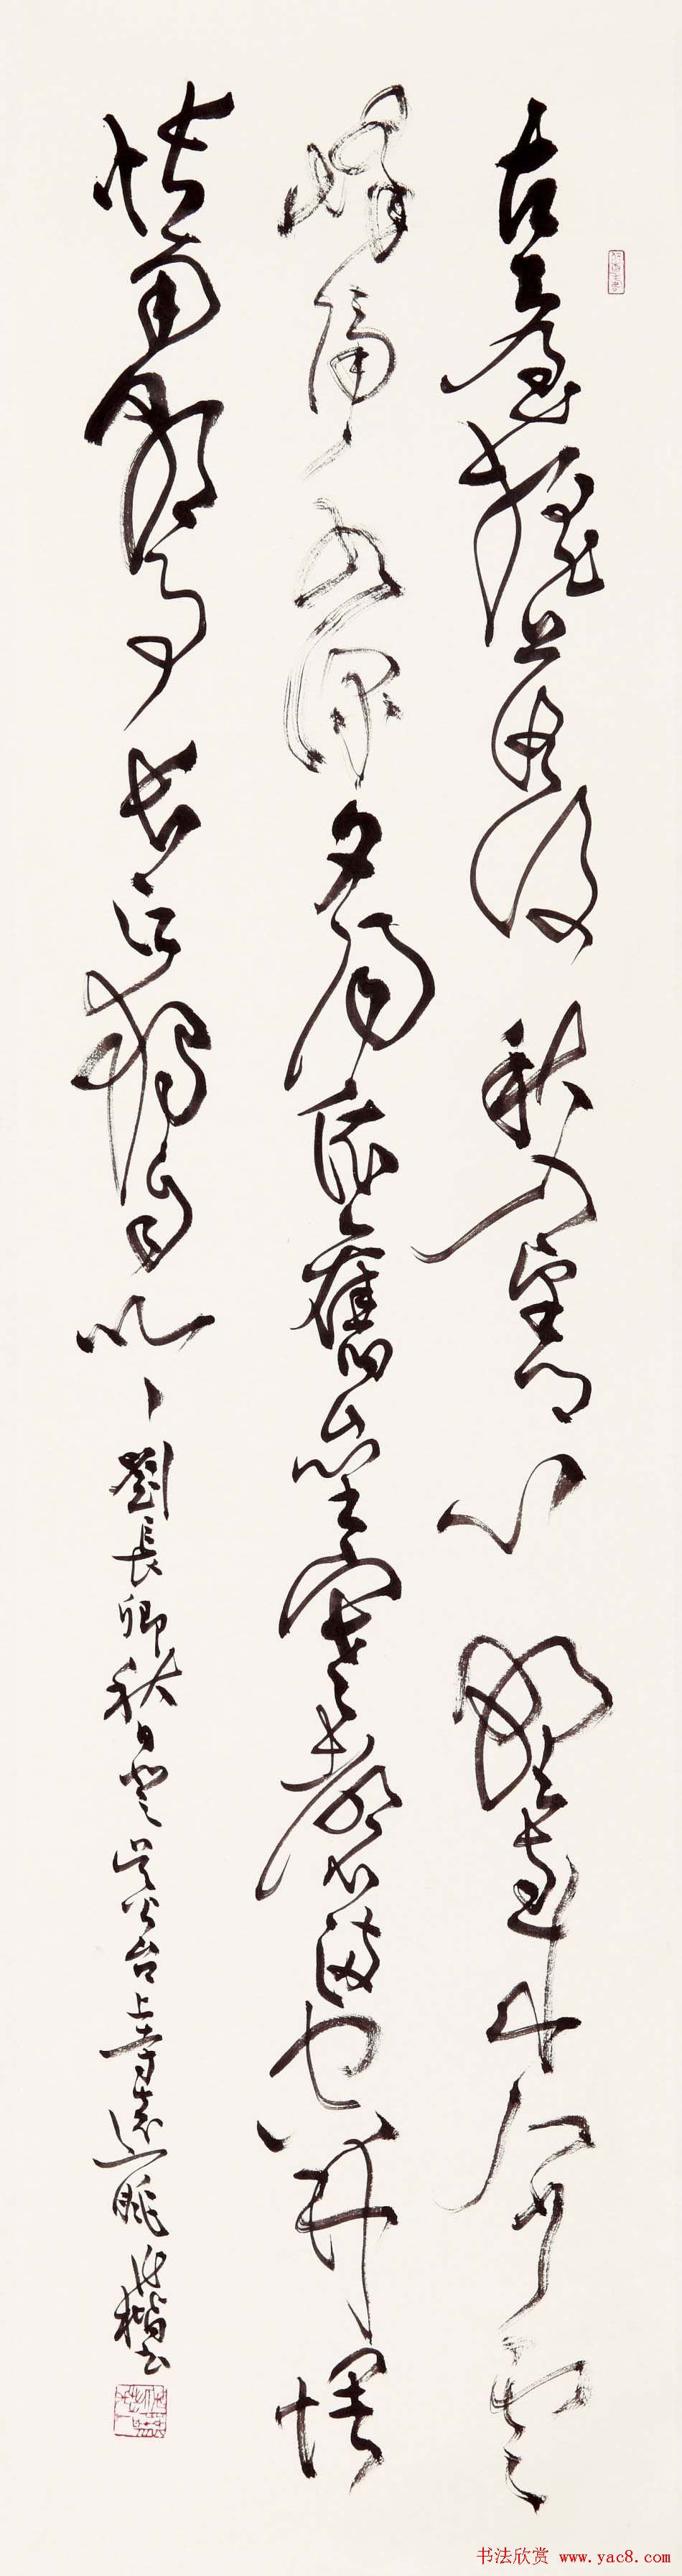 古臺搖落後秋入望鄉心野寺来人少雲
峰隔水深夕陽依舊壘寒磬滿空林惆
悵南朝事長江獨至今 劉長卿秋日登吳公台上寺遠眺 楷書
书法欣赏 www.yac8.com